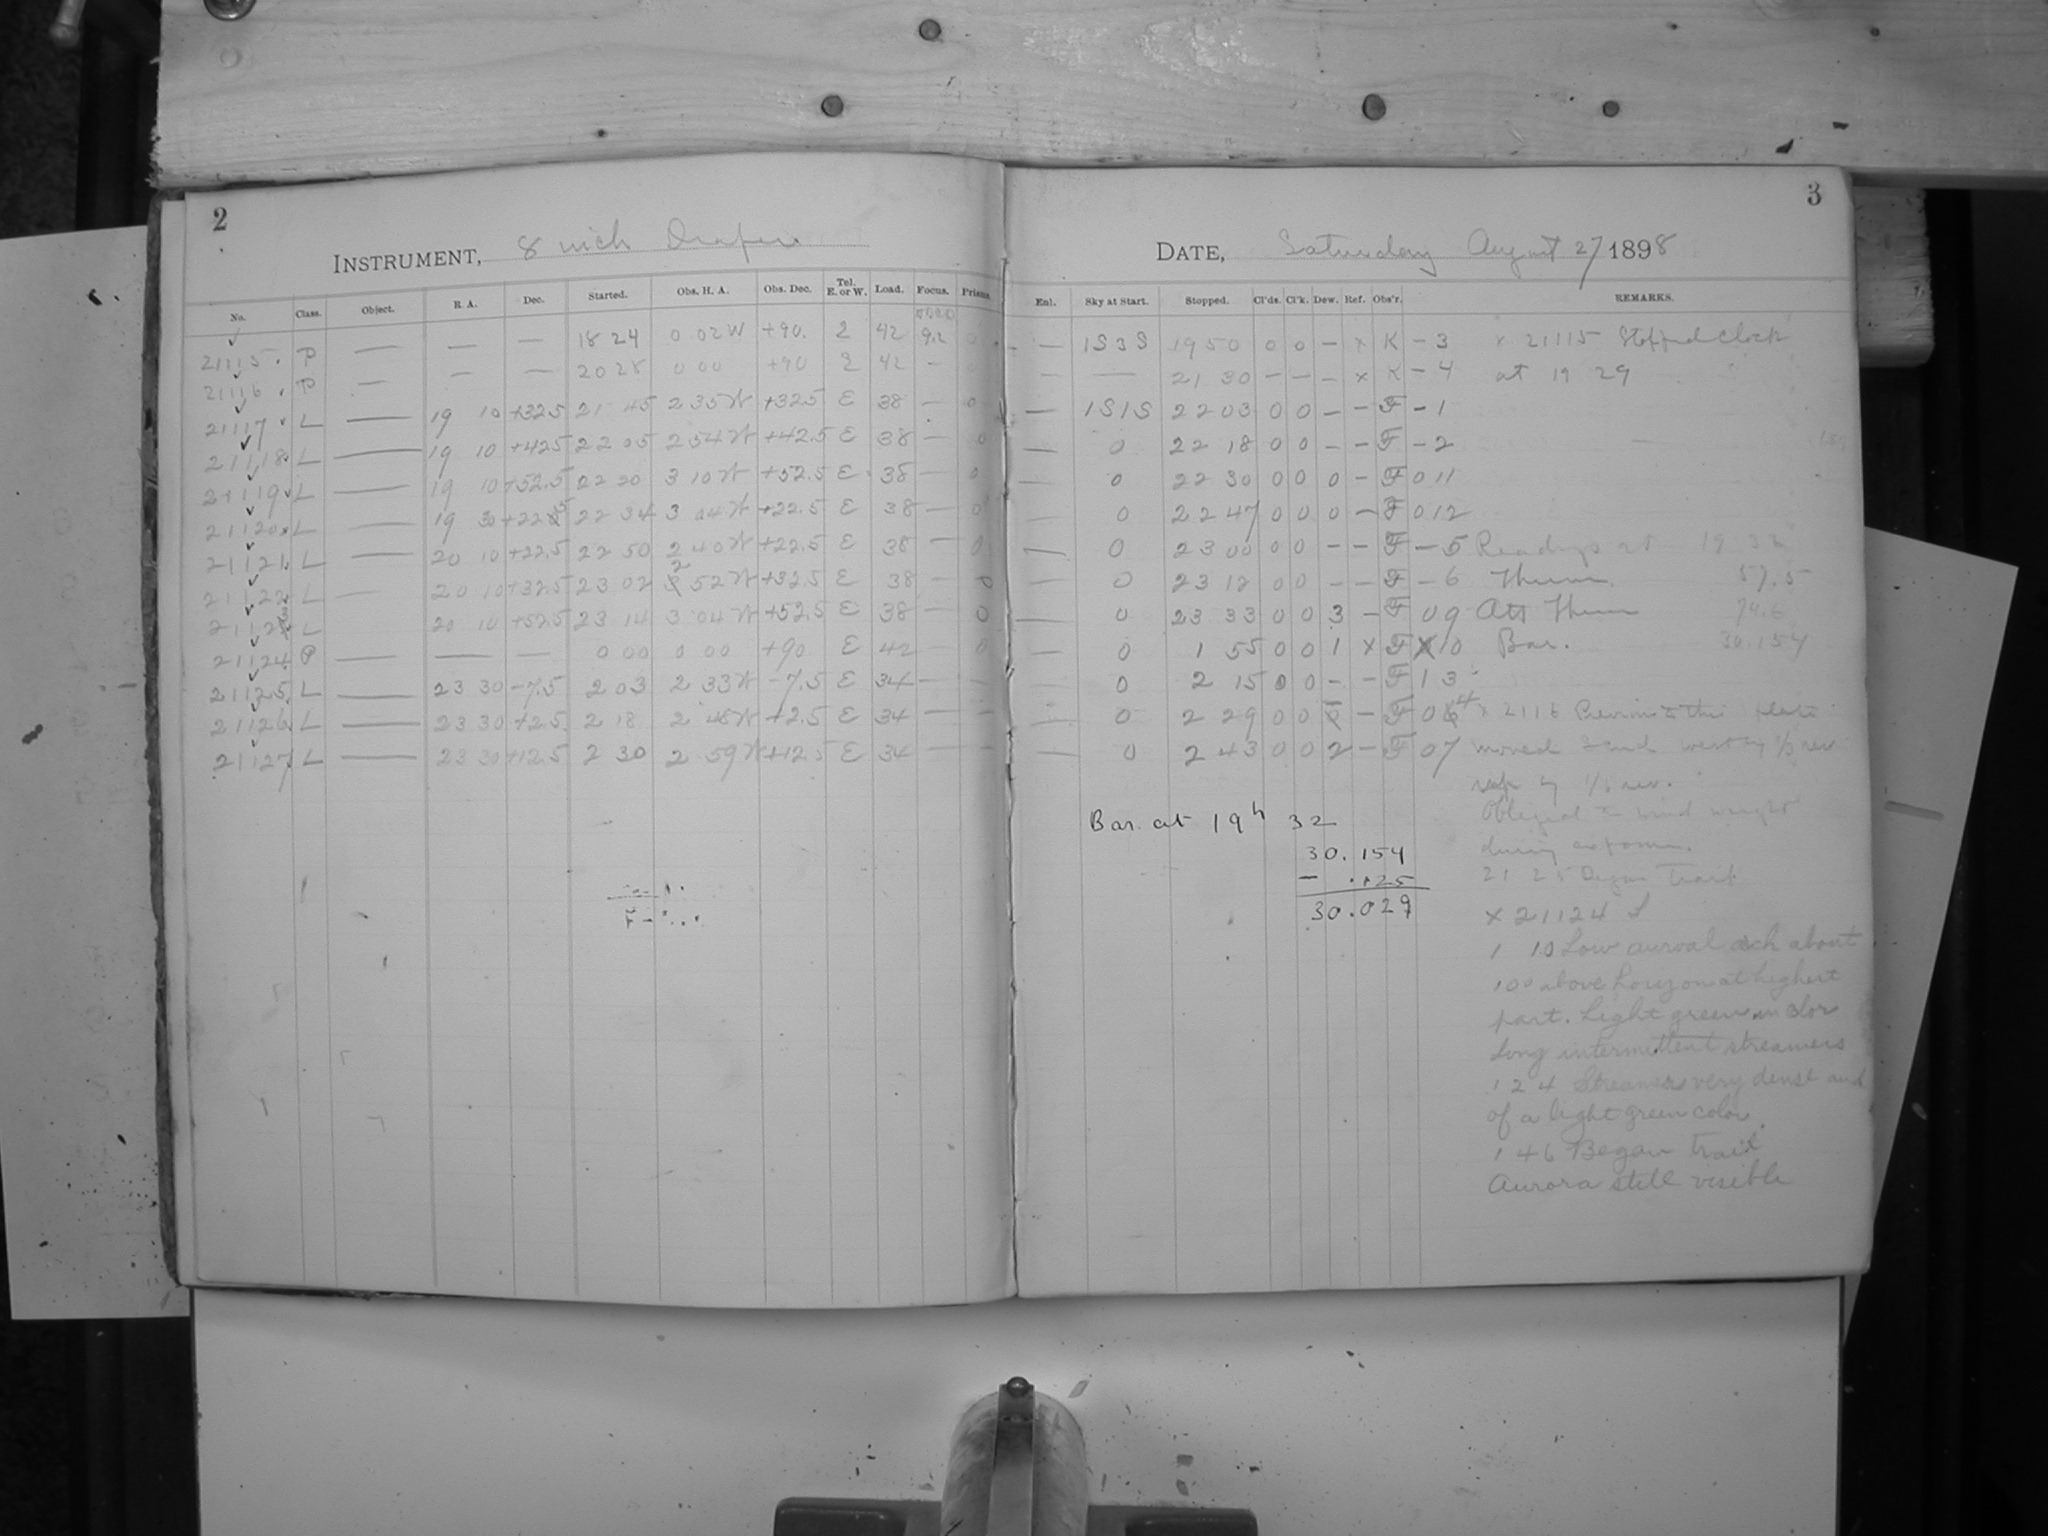 2
INSTRUMENT, 8 inch Draper
No. Class. Object. R. A. Dec. Started. Obs. H. A. Obs. Dec. Tel. E. or W. Load. Focus. Prisms
21115 P — — — 18 24 0 02W +90. 2 42 9.2 0
21116 P — — — 20 28 0 00 +90 2 42 — 0
21117 L — 19 10 +32.5 21 45 2 35W +32.5 E 38 — 0
21118 L — 19 10 +42.5 22 05 2 54W +42.5 E 38 — 0
21119 L — 19 10 +52.5 22 20 3 10W +52.5 E 38 — 0
21120 L — 19 30 +22.5 22 34 3 04W +22.5 E 38 — 0
21121 L — 20 10 +22.5 22 50 2 40W +22.5 E 38 — 0
21122 L — 20 10 +32.5 23 02 2 52W +32.5 E 38 — 0
21123 L 20 10 +52.5 23 14 3 04W +52.5 E 38 — 0
21124 P — — — 0 00 0 00 +90 E 42 — 0
21125 L — 23 30 -7.5 2 03 2 33W -7.5 E 34 — —
21126 L — 23 30 +2.5 2 18 2 48W +2.5 E 34 — —
21127 L — 23 30 +12.5 2 30 2 59W +12.5 E 34 — —
3
DATE, Saturday August 27 1898
Enl. Sky at Start. Stopped. Cl'ds. Cl'k. Dew. Ref. Obs'r. REMARKS.
— 1S3S 19 50 0 0 — x K — 3 x 21115 Stopped Clock
— — 21 30 — — — x K — 4 at 19 29
— 1S1S 22 03 0 0 — — F — 1
— 0 22 18 0 0 — — F — 2
— 0 22 30 0 0 0 — F 0 11
— 0 22 47 0 0 0 — F 0 12
— 0 23 00 0 0 — — F — 5 Readings at 19 32
— 0 23 12 0 0 — — F — 6 Therm. 57.5
— 0 23 33 0 0 3 — F 0 9 Att Therm 74.6
— 0 1 55 0 0 1 x F 10 Bar. 30.154
— 0 2 15 0 0 — — F 13
— 0 2 29 0 0 — — F 0 4 x 2116 Previous to this plate
— 0 2 43 0 0 2 — F 0 7 moved west by 1/3 rev
by rev.
Obliged to wind weight
during exposure.
21 25 Began trail
x 21124
1 10 Low auroral arch about
10° above horizon at highest
part. Light green in color
Long intermittent streamers
1 24 Streamers very dense and
of a light green color
1 46 Began trail
Aurora still visible
Bar. at 19h 32
30.154
— .125
30.029